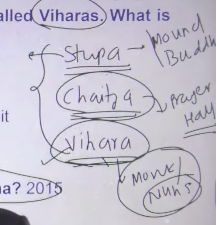 alled Viharas. What is
Stupa → Mound
Buddh
Chaitya → Prayer
Hall
it
Vihara
Monk/
Nuns
a? 2015